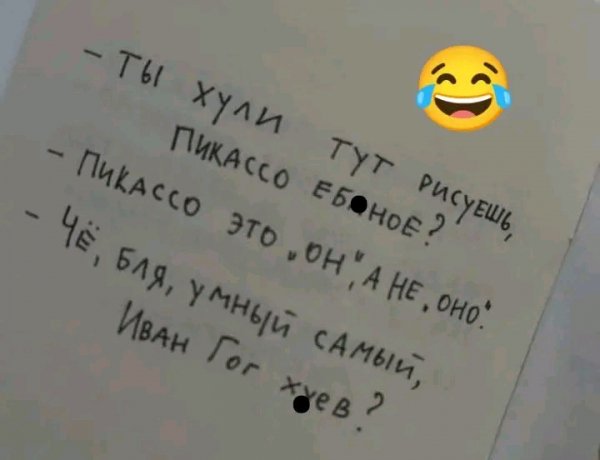 - ТЫ ХУЛИ ТУТ РИСУЕШЬ,
ПИКАССО ЕБ●НОЕ?
- ПИКАССО ЭТО „ОН“, А НЕ „ОНО“.
- ЧЁ, БЛЯ, УМНЫЙ САМЫЙ,
ИВАН ГОГ Х●ЕВ?